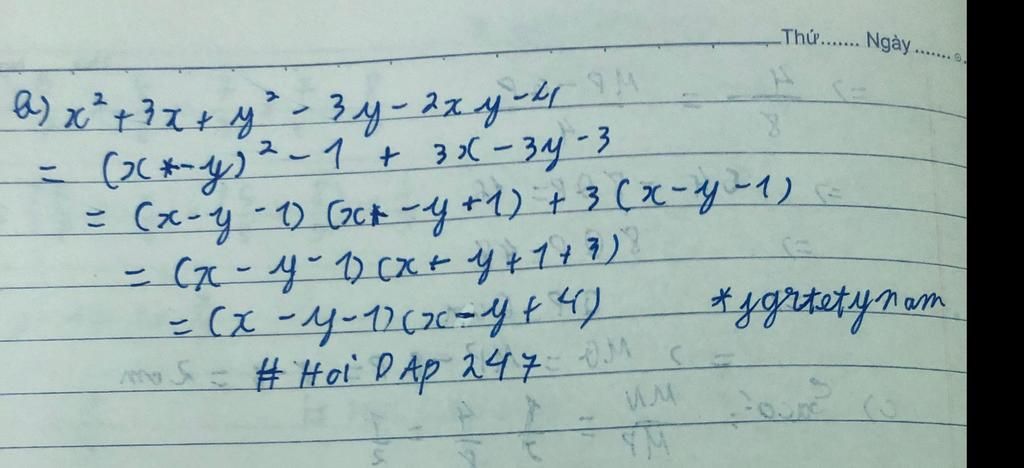 Thứ....... Ngày.......
a) x² + 3x + y² - 3y - 2xy - 4
= (x - y)² - 1 + 3x - 3y - 3
= (x - y - 1) (x - y + 1) + 3 (x - y - 1)
= (x - y - 1) (x - y + 1 + 3)
= (x - y - 1) (x - y + 4) *jgrtetynam
# Hoi DAp 247